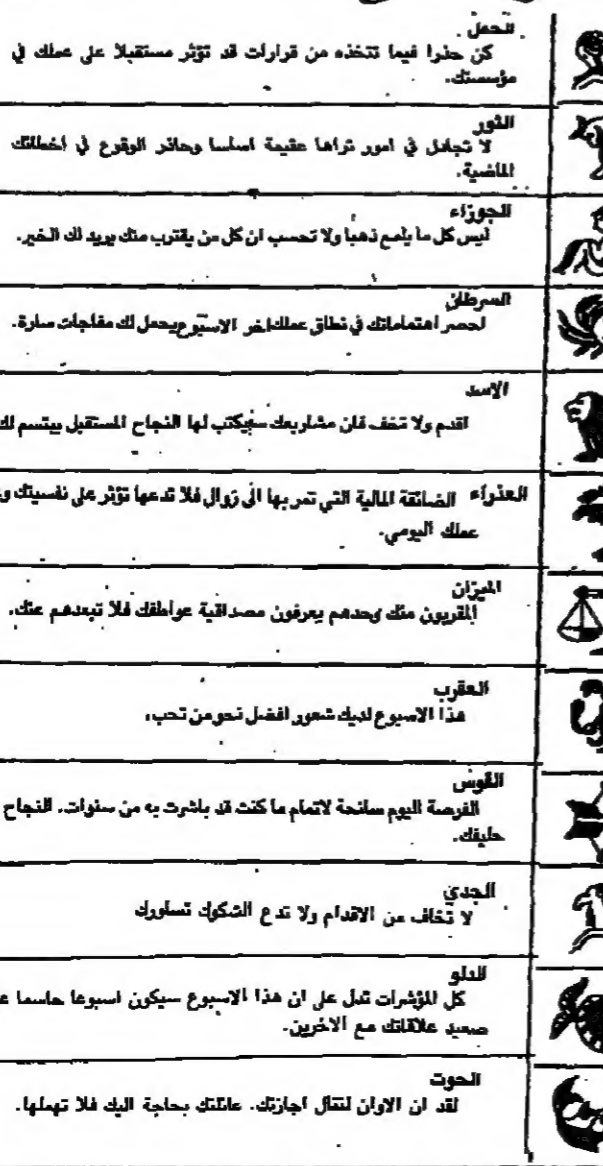 الحمل
كن حذرا فيما تتخذه من قرارات قد تؤثر مستقبلا على عملك في
مؤسستك.
الثور
لا تجادل في امور تراها عقيمة اساسا وحاذر الوقوع في اخطائك
الماضية.
الجوزاء
ليس كل ما يلمع ذهبا ولا تحسب ان كل من يقترب منك يريد لك الخير.
السرطان
احصر اهتماماتك في نطاق عملك اخر الاسبوع يحمل لك مفاجآت سارة.
الاسد
اقدم ولا تخف فان مشاريعك سيكتب لها النجاح المستقبل يبتسم لك
العذراء الضائقة المالية التي تمر بها الى زوال فلا تدعها تؤثر على نفسيتك و
عملك اليومي.
الميزان
المقربون منك وحدهم يعرفون مصداقية عواطفك فلا تبعدهم عنك.
العقرب
هذا الاسبوع لديك شعور افضل نحو من تحب،
القوس
الفرصة اليوم سانحة لاتمام ما كنت قد باشرت به من سنوات. النجاح
حليفك.
الجدي
لا تخاف من الاقدام ولا تدع الشكوك تساورك
الدلو
كل المؤشرات تدل على ان هذا الاسبوع سيكون اسبوعا حاسما
صعيد علاقاتك مع الاخرين.
الحوت
لقد ان الاوان لتنال اجازتك. عائلتك بحاجة اليك فلا تهملها.